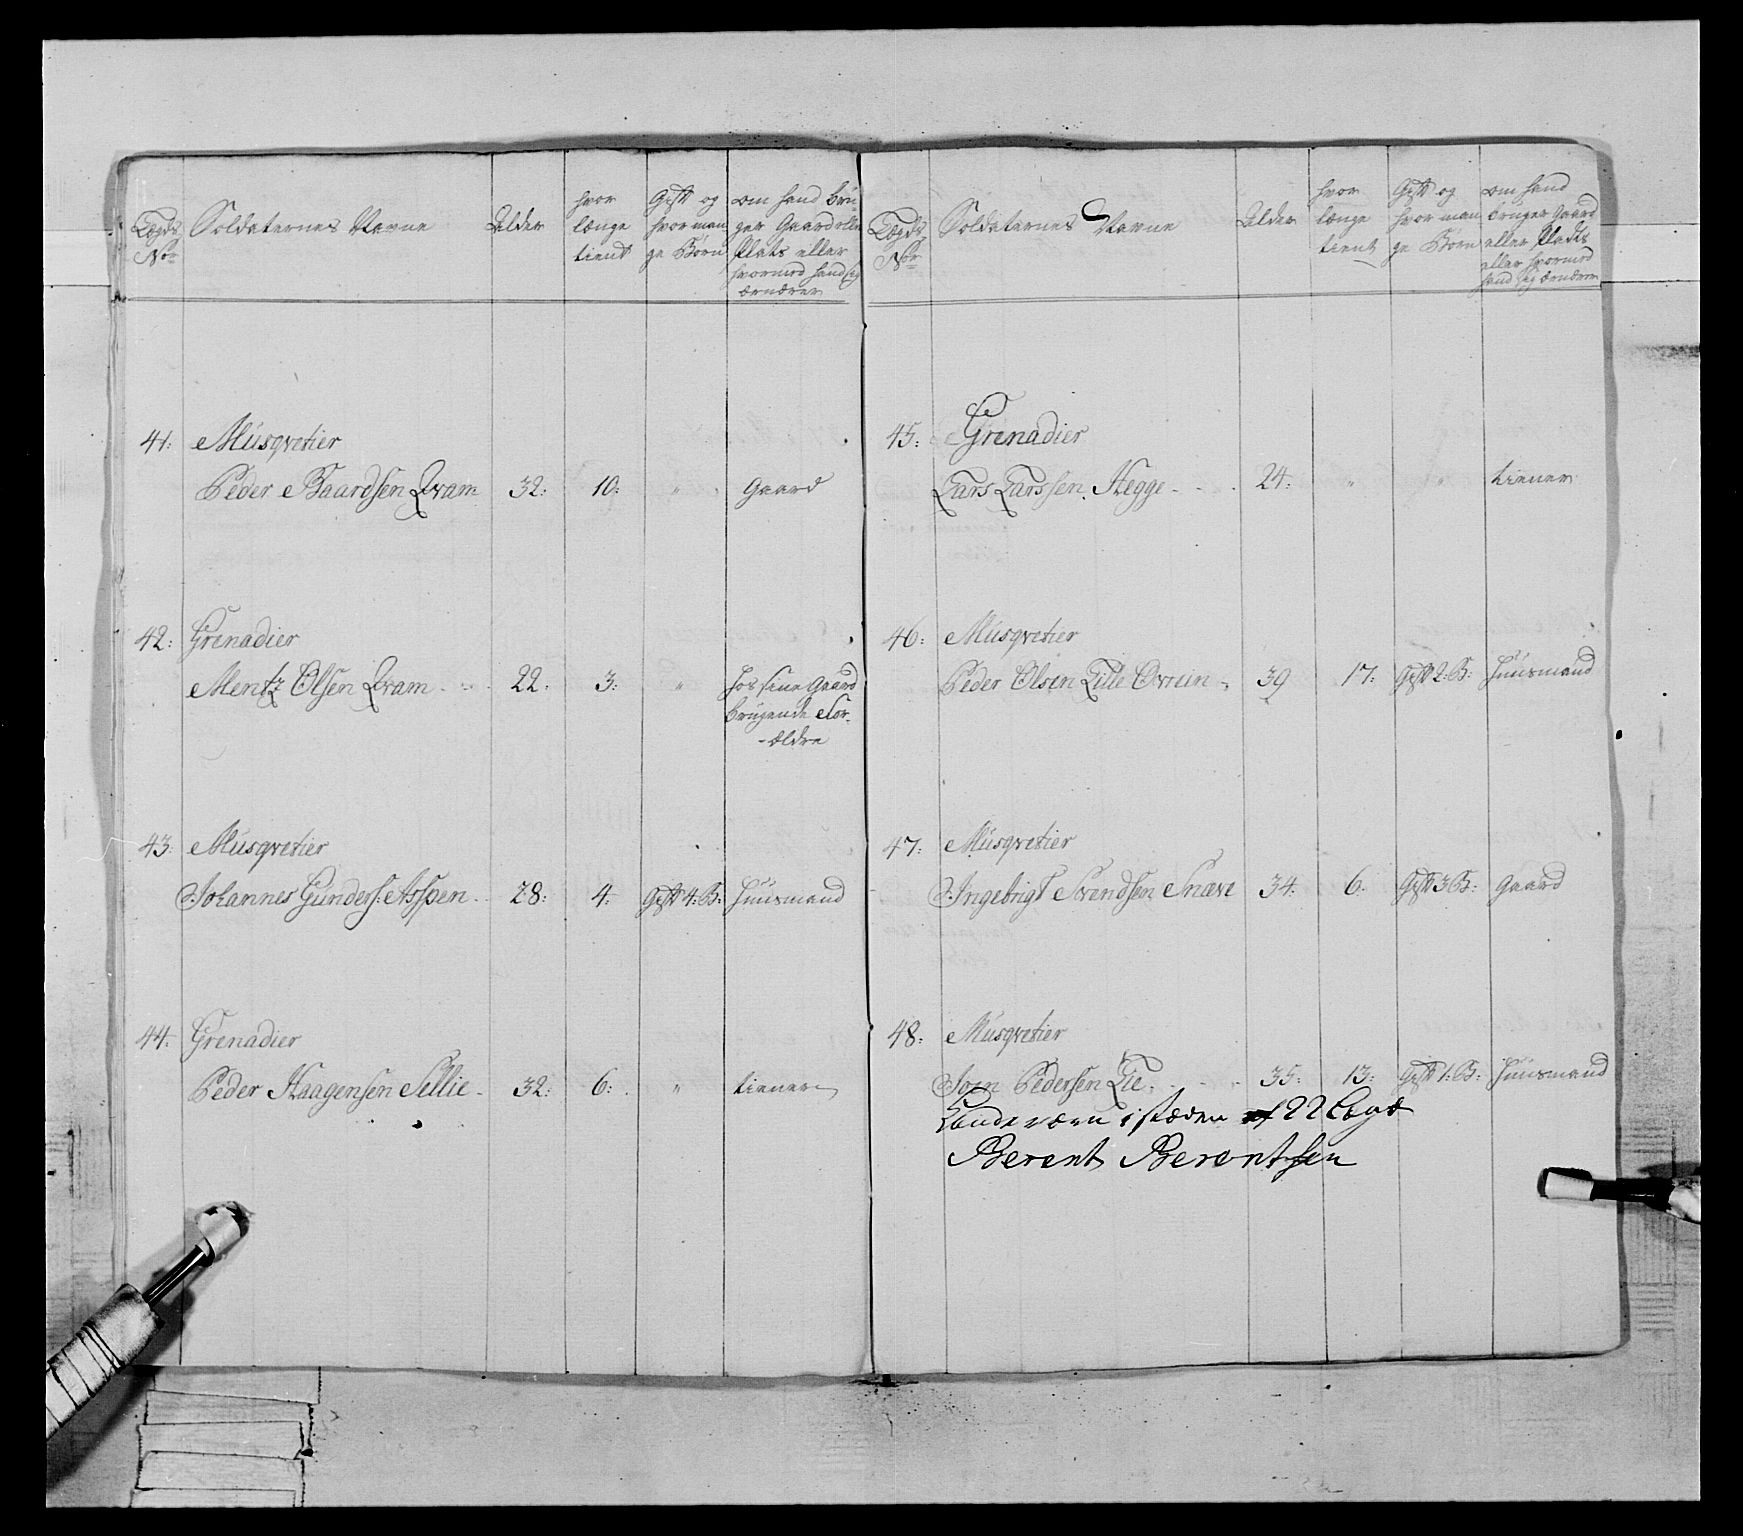 Lægds Nor
Soldaternes Navne
Alder
hvor længe tient
Gift og hvor mange Børn
om hand brüger Gaard eller Plats eller hvormed hand sig ærnærer
41: Musqvetier
Peder Baardsen Qvam 32: 10: " Gaard
42: Grenadier
Mentz Olsen Qvam 22. 3: " hos sine Gaard
brügende For-
-ældre
43. Musqvetier
Johannes Gunders: Aspen 28: 4. Gift 4: B: Huusmand
44: Grenadier
Peder Haagensen Sellie 32: 6: " tiener
Lægds Nor
Soldaternes Navne
Alder
hvor længe tient
Gift og hvor mange Børn
om hand bruger Gaard eller Plads eller hvormed hand sig ærnærer
45: Grenadier
Lars Larssen Hegge 24: " " tiener
46: Musqvetier
Peder Olsen Lille Ovrum 39 17: Gift 2: B: Huusmand
47: Musqvetier
Ingebrigt Svendsen Snave 34: 6. Gift 3 B: Gaard
48: Musqvetier
Iven Pedersen Lie 35: 13: Gift 1: B: Huusmand
Landeværn i stæden af 22 Lægd
Berent Berentsen